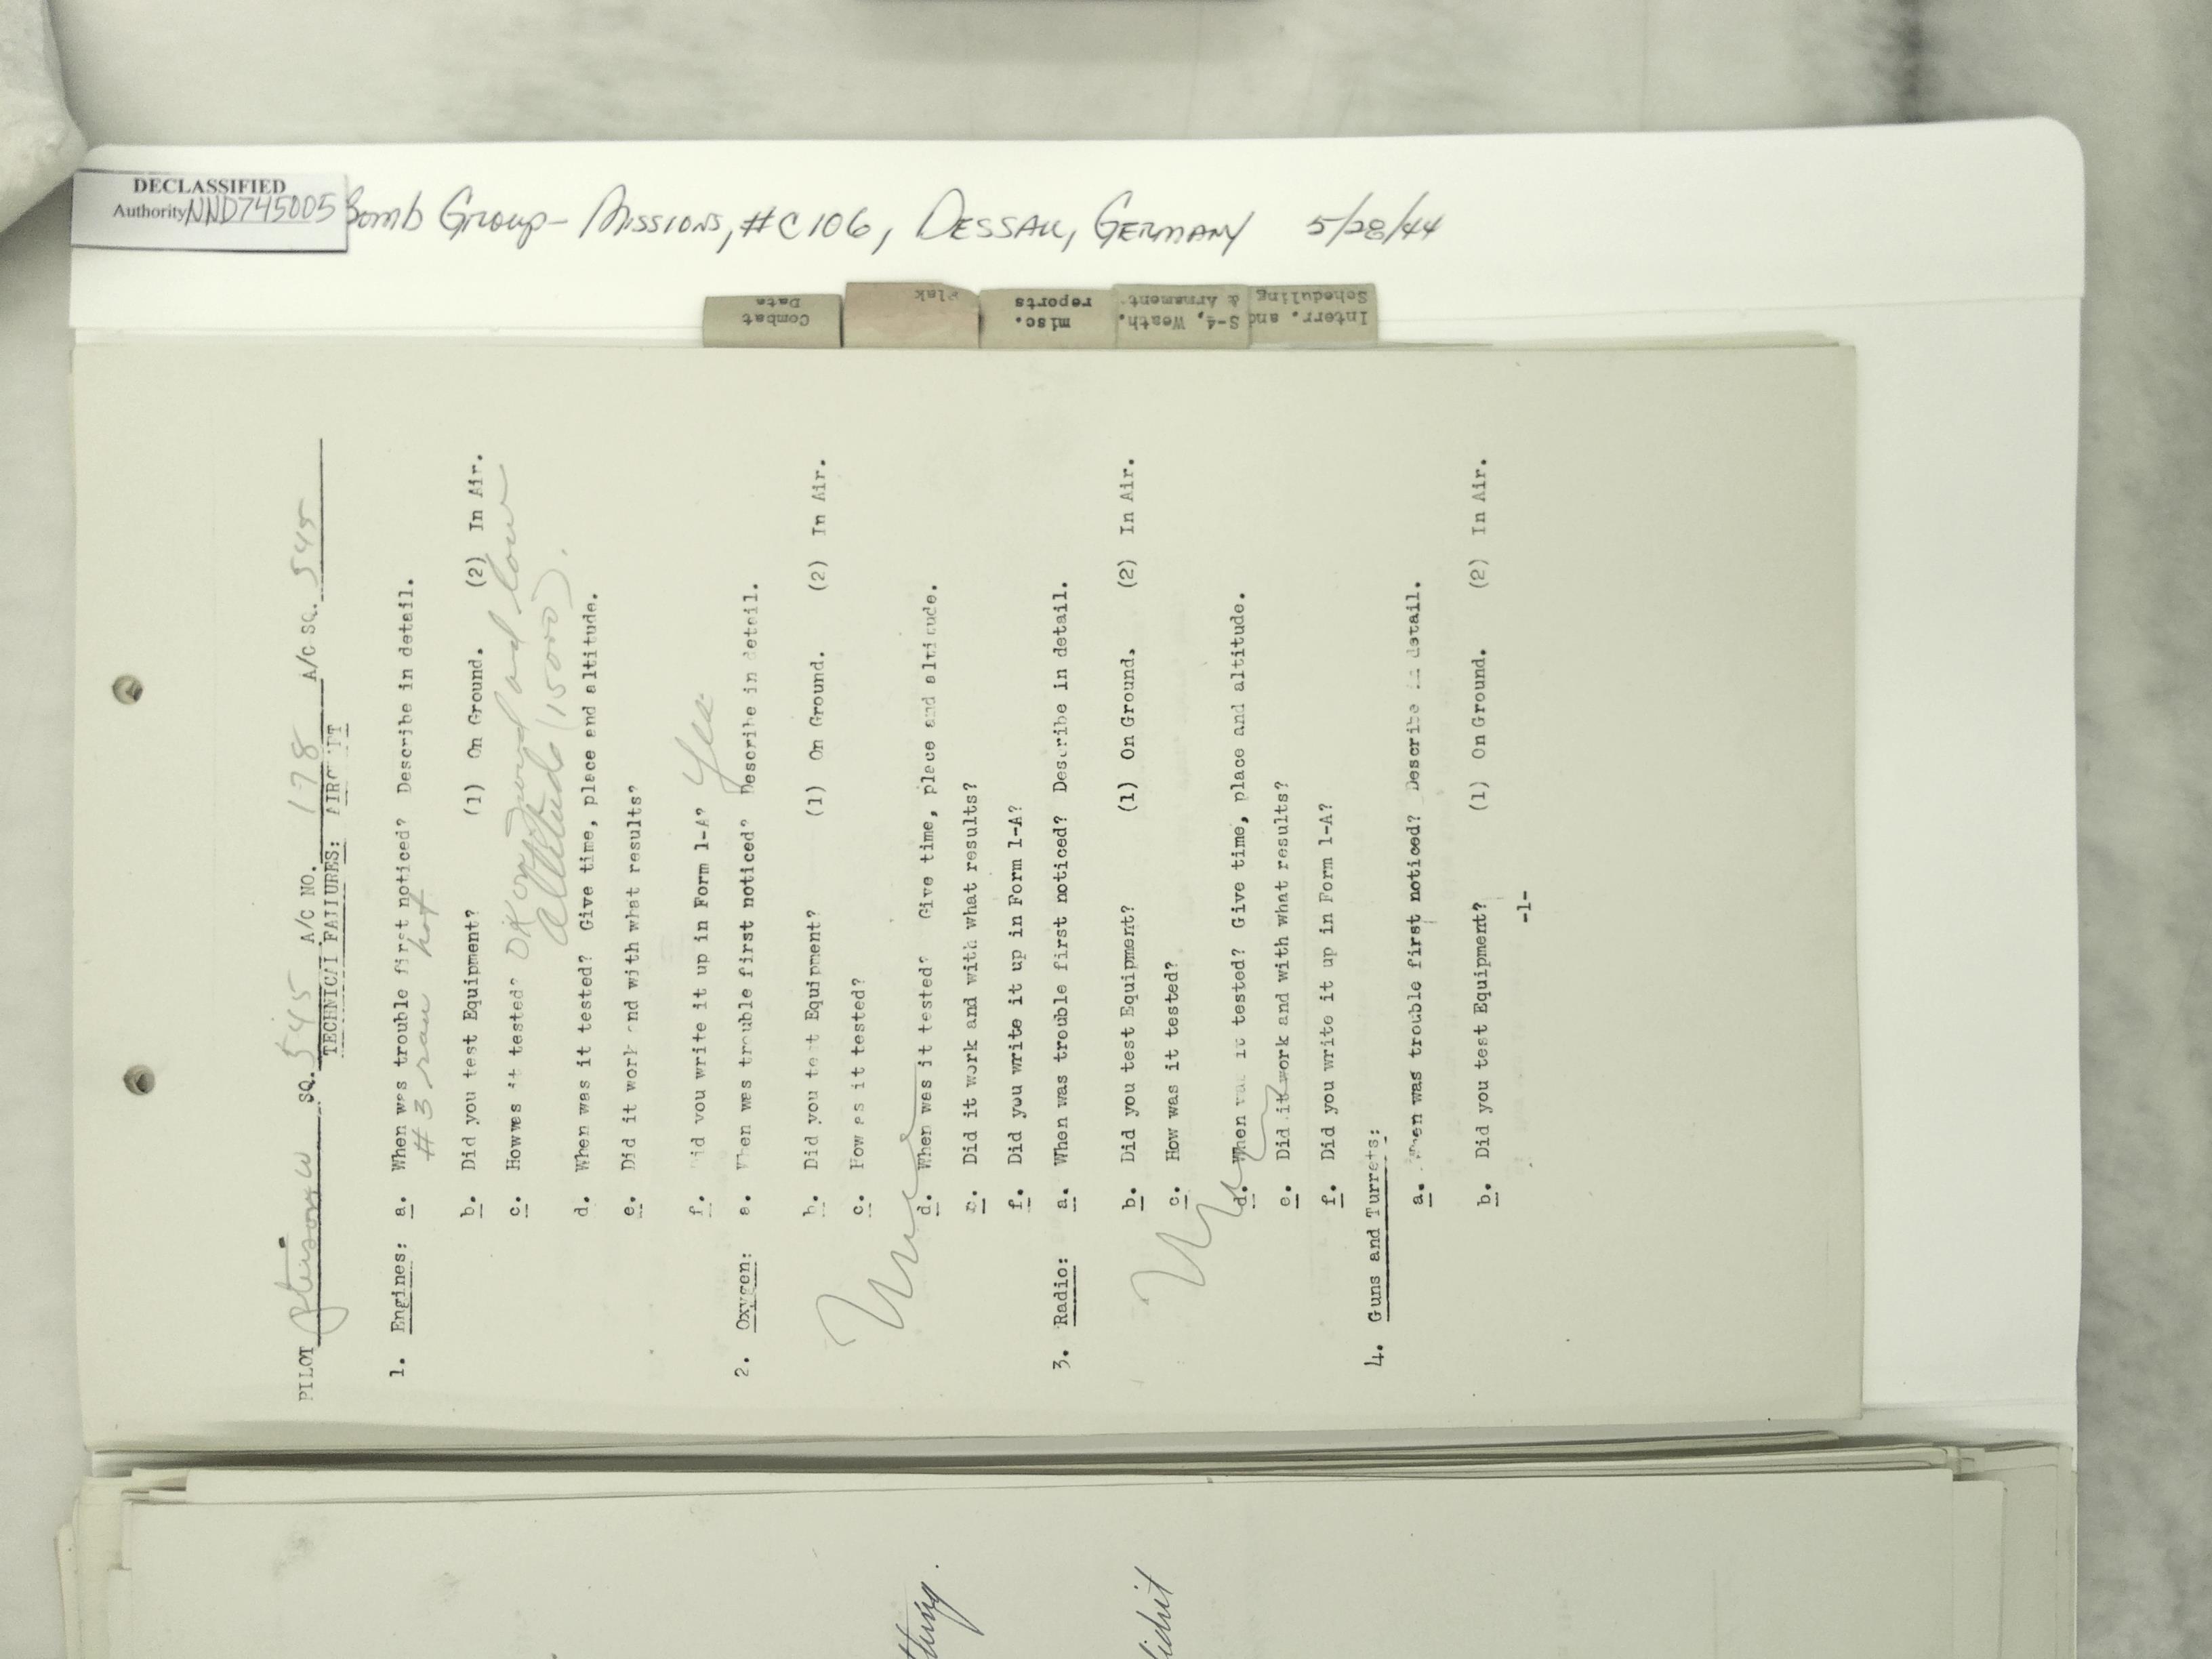 DECLASSIFIED
Authority NND745005
Bomb Group - Missions, #C106, Dessau, Germany 5/28/44
Combat Data
Flak
misc. reports
S-4, Weath. & Armament
Interr. and Scheduling
PILOT SQ. 545 A/C NO. 178 A/C SQ. 545
TECHNICAL FAILURES: AIRCRAFT
1. Engines: a. When was trouble first noticed? Describe in detail.
#3 ran hot
b. Did you test Equipment? (1) On Ground. (2) In Air.
c. How was it tested? OK on ground and low
altitude (15000).
d. When was it tested? Give time, place and altitude.
e. Did it work and with what results?
f. Did you write it up in Form 1-A? Yes
2. Oxygen: a. When was trouble first noticed? Describe in detail.
b. Did you test Equipment? (1) On Ground. (2) In Air.
c. How was it tested?
d. When was it tested? Give time, place and altitude.
e. Did it work and with what results?
f. Did you write it up in Form 1-A?
3. Radio: a. When was trouble first noticed? Describe in detail.
b. Did you test Equipment? (1) On Ground. (2) In Air.
c. How was it tested?
d. When was it tested? Give time, place and altitude.
e. Did it work and with what results?
f. Did you write it up in Form 1-A?
4. Guns and Turrets:
a. When was trouble first noticed? Describe in detail.
b. Did you test Equipment? (1) On Ground. (2) In Air.
-1-